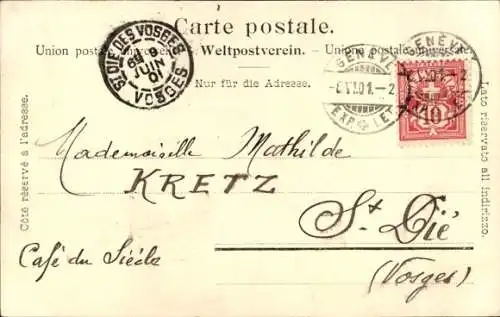 Carte postale.
Union postale universelle. Weltpostverein. Unione postale universale.
Nur für die Adresse.
Côté réservé à l'adresse.
Lato riservato all'indirizzo.
ST DIÉ DES VOSGES
8
JUIN
01
VOSGES
GENÈVE
-6.VI.01.-2
EXP. LET.
GENÈVE
10
Mademoiselle Mathilde
KRETZ
St Dié
(Vosges)
Café du Siécle